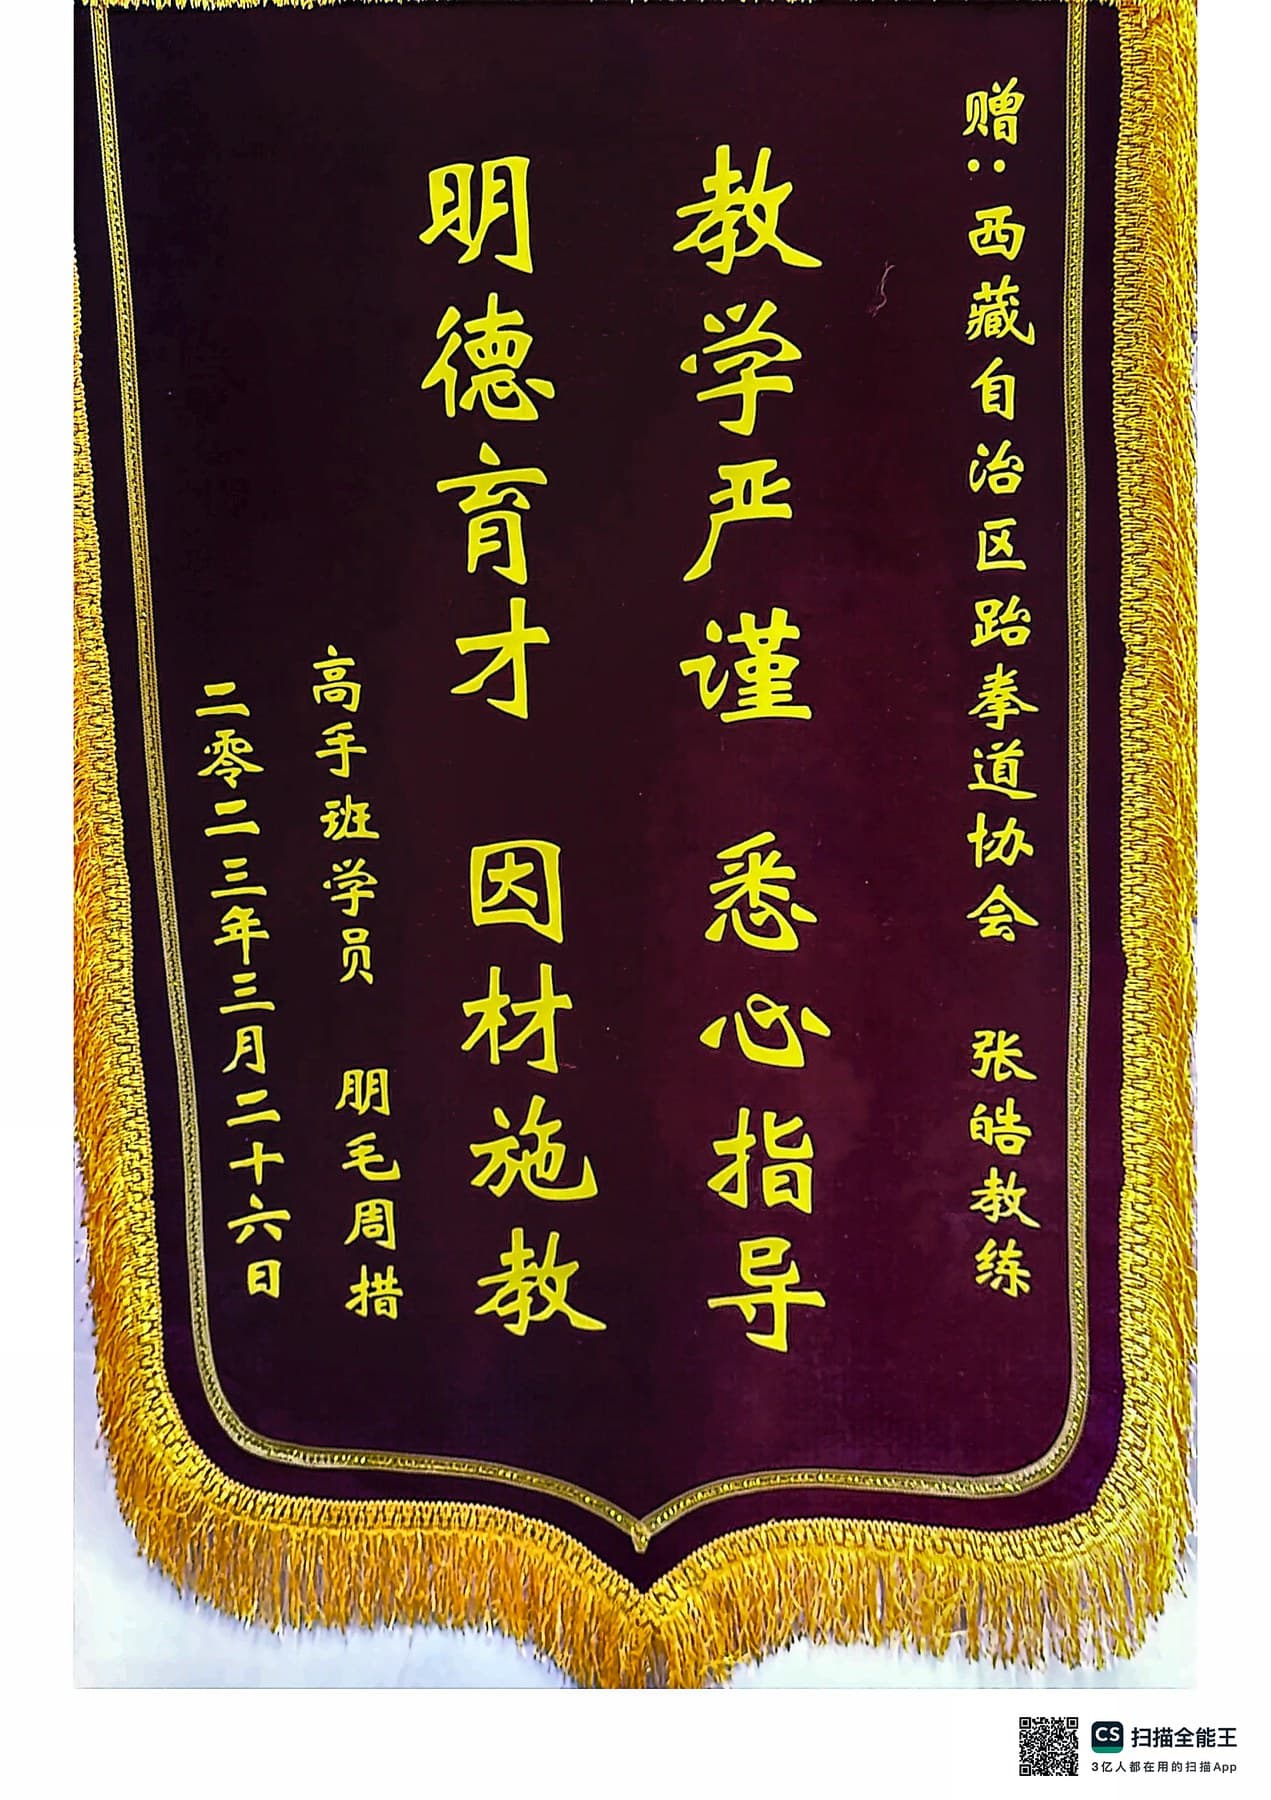 赠：西藏自治区跆拳道协会 张皓教练
教学严谨 悉心指导
明德育才 因材施教
高手班学员 朋毛周措
二零二三年三月二十六日
CS 扫描全能王
3亿人都在用的扫描App